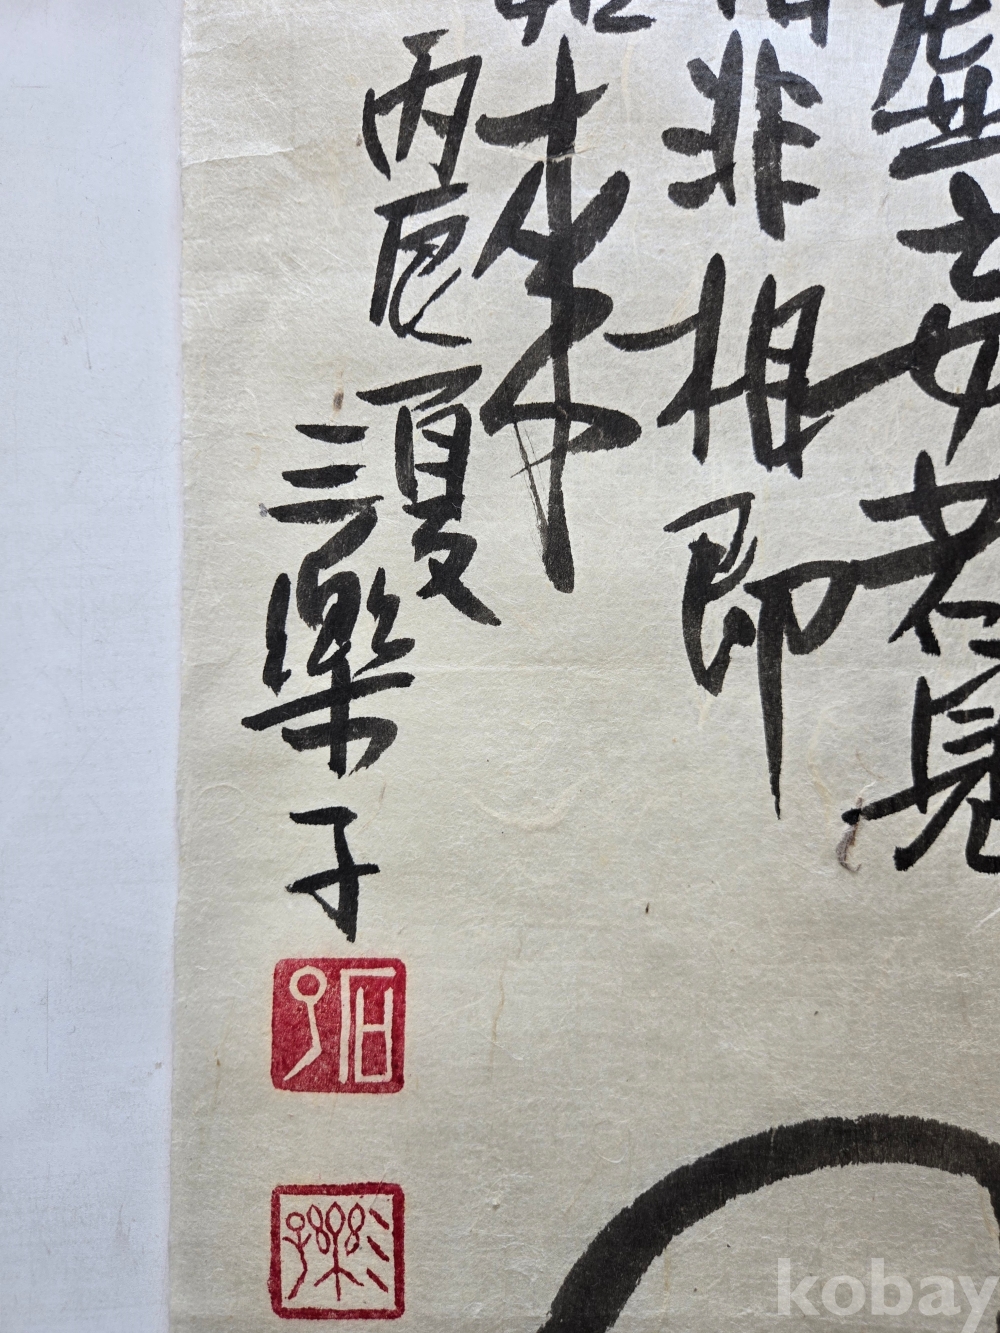 虛妄若見
相非相即
如來
丙辰夏
三樂子
kobay